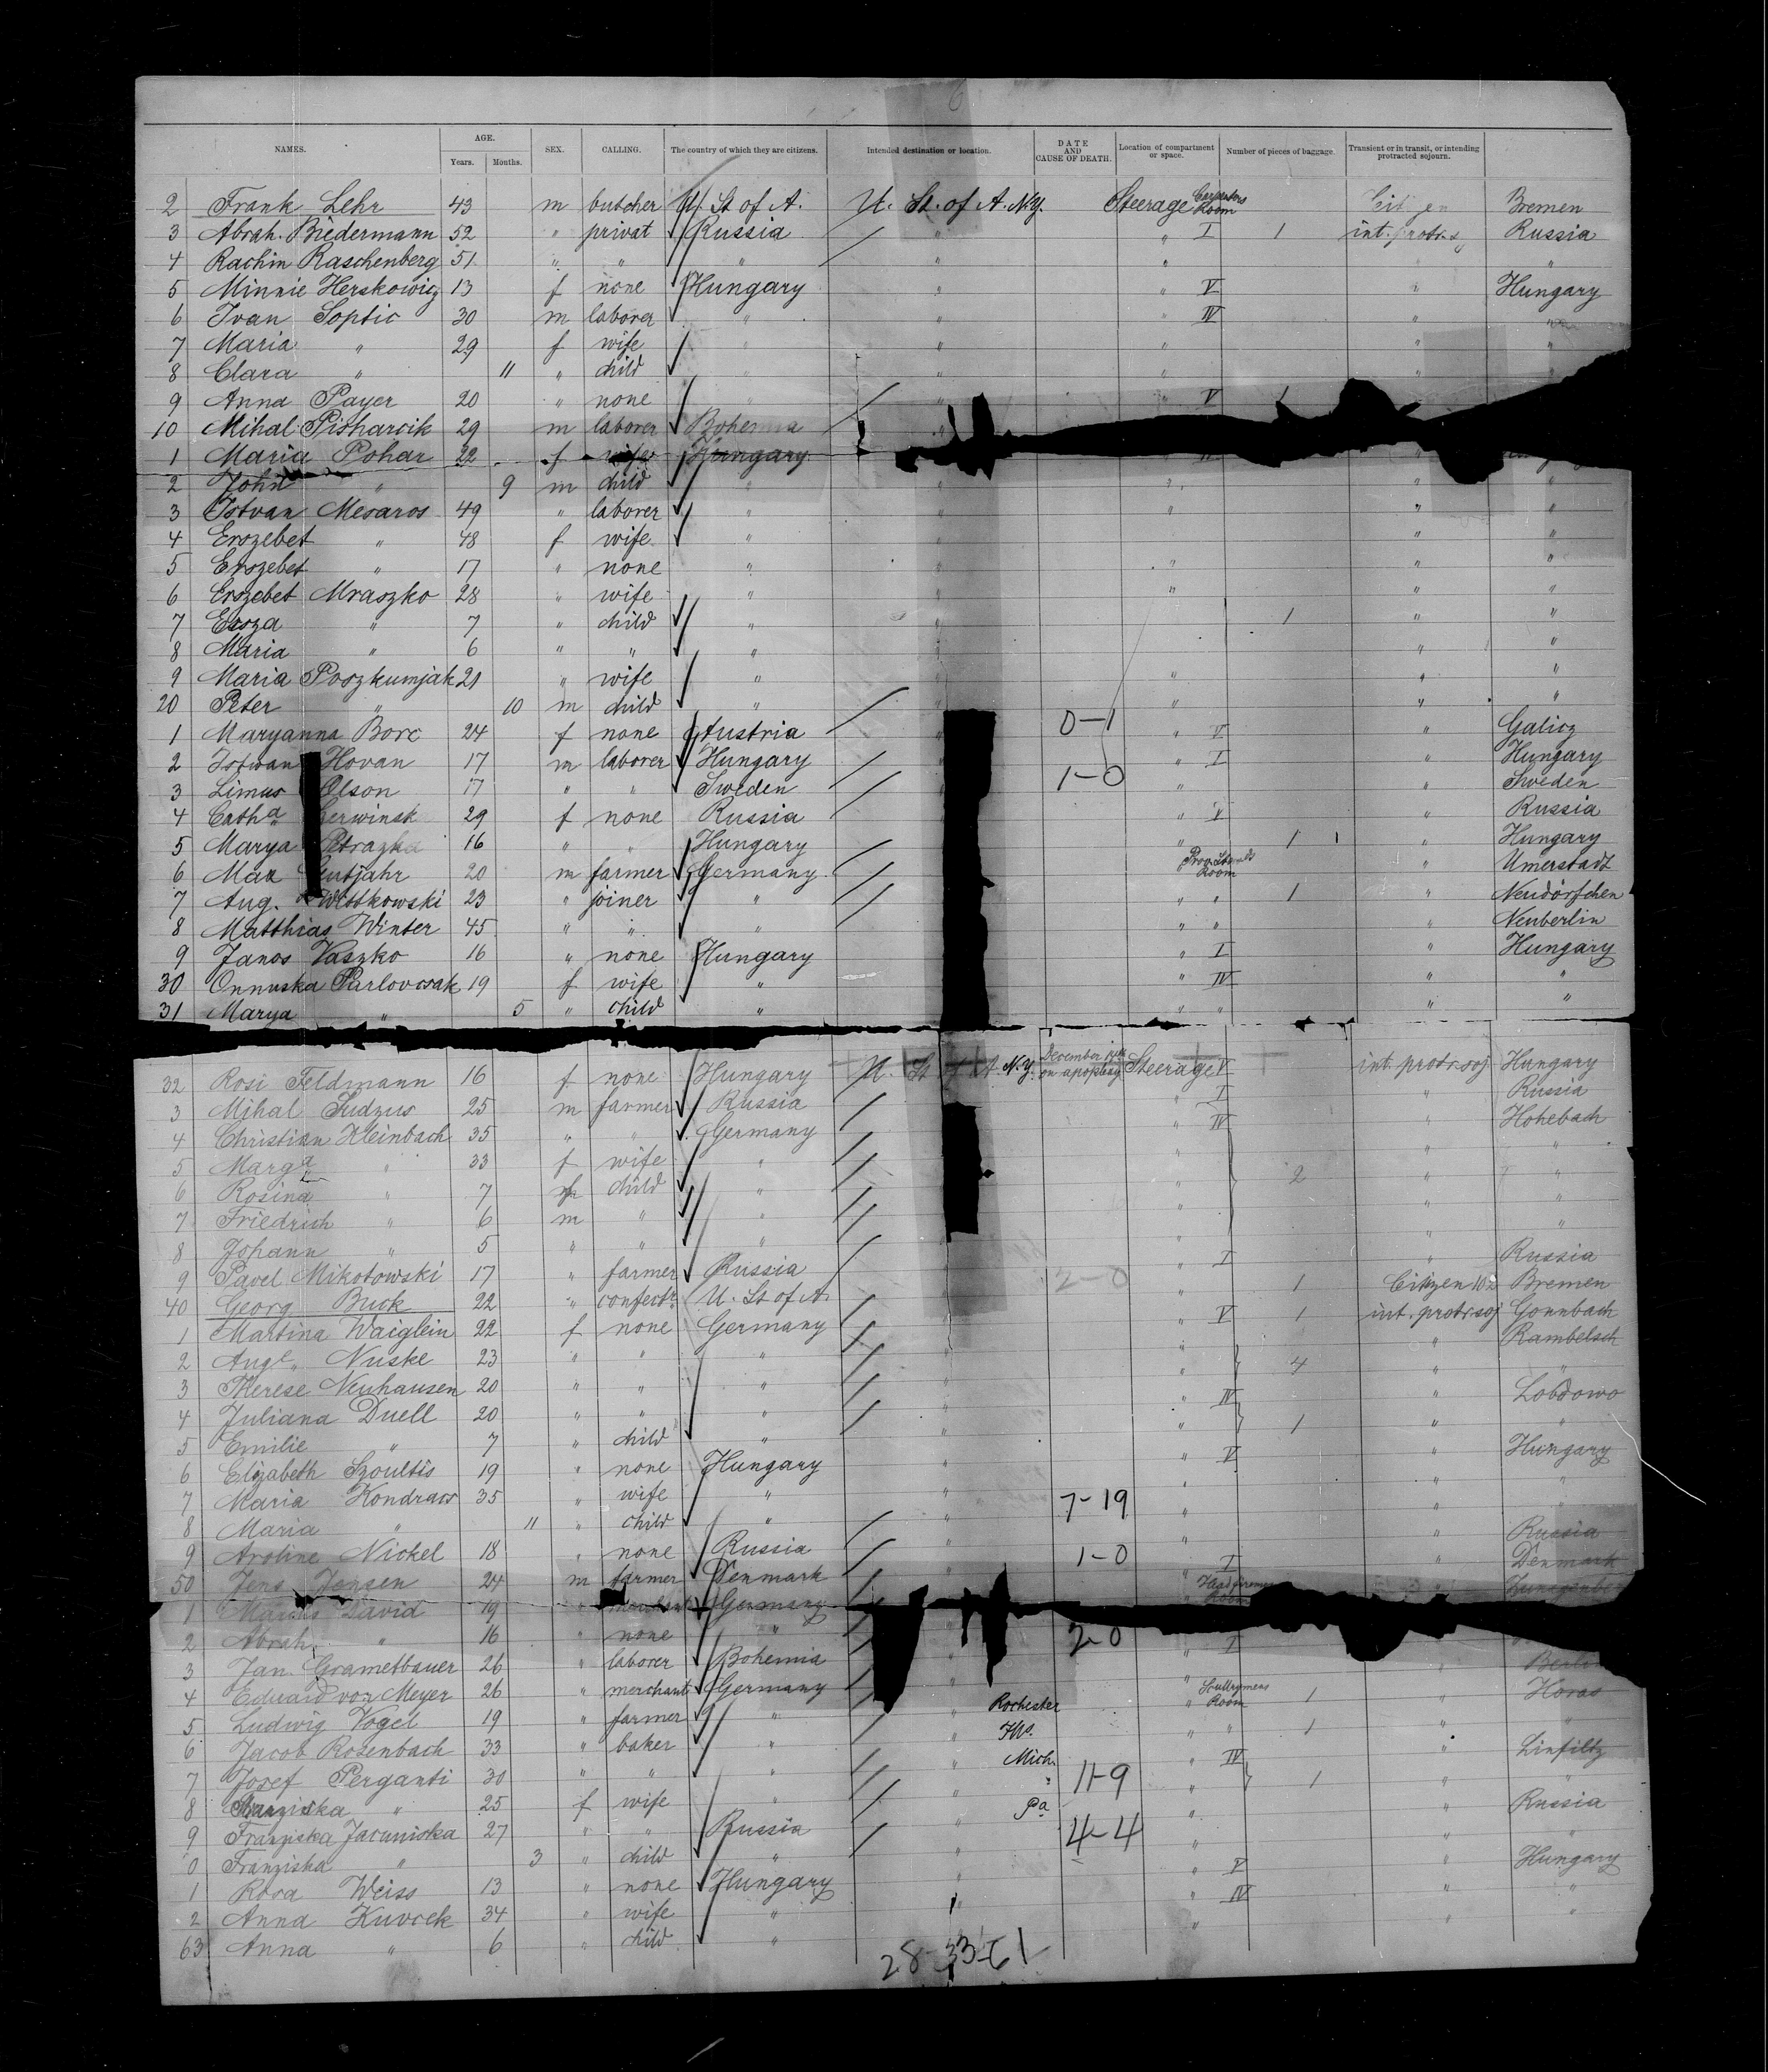 6
NAMES. AGE. Years. Months. SEX. CALLING. The country of which they are citizens. Intended destination or location. DATE AND CAUSE OF DEATH. Location of compartment or space. Number of pieces of baggage. Transient or in transit, or intending protracted sojourn.
2 Frank Lehr 43 m butcher U. St of A. U. St. of A. N.Y. Steerage Carpenters Room Citizen Bremen
3 Abrah. Biedermann 52 " privat Russia " " I 1 int. protr. s Russia
4 Rachin Raschenberg 51 " " " " " "
5 Minnie Herskowicz 13 f none Hungary " " V " Hungary
6 Ivan Soptic 30 m laborer " " " IV " "
7 Maria " 29 f wife " " " " "
8 Clara " 11 " child " " " "
9 Anna Payer 20 " none " " " V 1
10 Mihal Pisharcik 29 m laborer Bohemia "
1 Maria Pohar 22 f wife Hungary
2 John " 9 m child " " " " "
3 Istvan Mesaros 49 " laborer " " " " "
4 Erszebet " 48 f wife " " " "
5 Erszebet " 17 " none " " " " "
6 Erszebet Mraszko 28 " wife " " " " "
7 Ersza " 7 " child " " 1 " "
8 Maria " 6 " " " " " "
9 Maria Poszkumjak 21 " wife " " " " "
20 Peter " 10 m child " " " " "
1 Maryanna Borc 24 f none Austria " 0-1 " V " Galicz
2 Istwan Hovan 17 m laborer Hungary " I " Hungary
3 Limus Olson 17 " " Sweden 1-0 " " Sweden
4 Cath a erwinsk 29 f none Russia " V Russia
5 Marya Petrazka 16 " " Hungary 1 " Hungary
6 Max Gutjahr 20 m farmer Germany Room " Umerstadt
7 Aug. Wittkowski 23 " joiner " " " 1 " Neudörfchen
8 Matthias Winter 45 " " " " " " Neuberlin
9 Janos Vaszko 16 " none Hungary " I " Hungary
30 Onnuska Parlovcsak 19 f wife " " IV " "
31 Marya " 5 " child " " " " "
32 Rosi Feldmann 16 f none Hungary U. St A. N.Y. December on apoplexy Steerage V int. protr. soj Hungary
3 Mihal Sudzus 25 m farmer Russia " I " Russia
4 Christian Kleinbach 35 " " Germany " IV " Hohebach
5 Marg a " 33 f wife " " " "
6 Rosina " 7 f child " " 2 " "
7 Friedrich " 6 m " " " " "
8 Johann " 5 " " " " " "
9 Pavel Mikotowski 17 " farmer Russia " I " Russia
40 Georg Buck 22 " confectr. U. St of A. 2-0 " 1 Citizen Bremen
1 Martina Waiglein 22 f none Germany " V 1 int. protr. soj Gonnbach
2 Aug e " Nuske 23 " " " " " " Rambelsch
3 Therese Neuhausen 20 " " " " " 4 " "
4 Juliana Duell 20 " " " " " IV " Lobdowo
5 Emilie " 7 " child " " " 1 " "
6 Elizabeth Szoultis 19 " none Hungary " " V " Hungary
7 Maria Kondracs 35 " wife " " " " "
8 Maria " 11 " child " " 7-19 " " "
9 Aroline Nickel 18 " none Russia " " " Russia
50 Jens Jensen 24 m farmer Denmark " 1-0 " I " Denmark
1 Marcus David 19 " Germany " Room
2 Abrah. " 16 " none " " 2-0 I
3 Jan. Grametbauer 26 " laborer Bohemia " "
4 Eduard von Meyer 26 " merchant Germany " Rochester " Scullrymens Room 1 " Berlin
5 Ludwig Vogel 19 " farmer " " Ills. " " 1 " Horas
6 Jacob Rosenbach 33 " baker " " Mich. " IV " "
7 Josef Perganti 30 " " " " " 11-9 " 1 " Linfiltz
8 Franziska " 25 f wife " " Pa " " "
9 Franziska Jacuniska 27 " " Russia " 4-4 " " Russia
0 Franziska " 3 " child " " " " "
1 Rosa Weiss 13 " none Hungary " " V " Hungary
2 Anna Kuvcek 34 " wife " " " IV " "
63 Anna " 6 " child " " " "
28-33-61